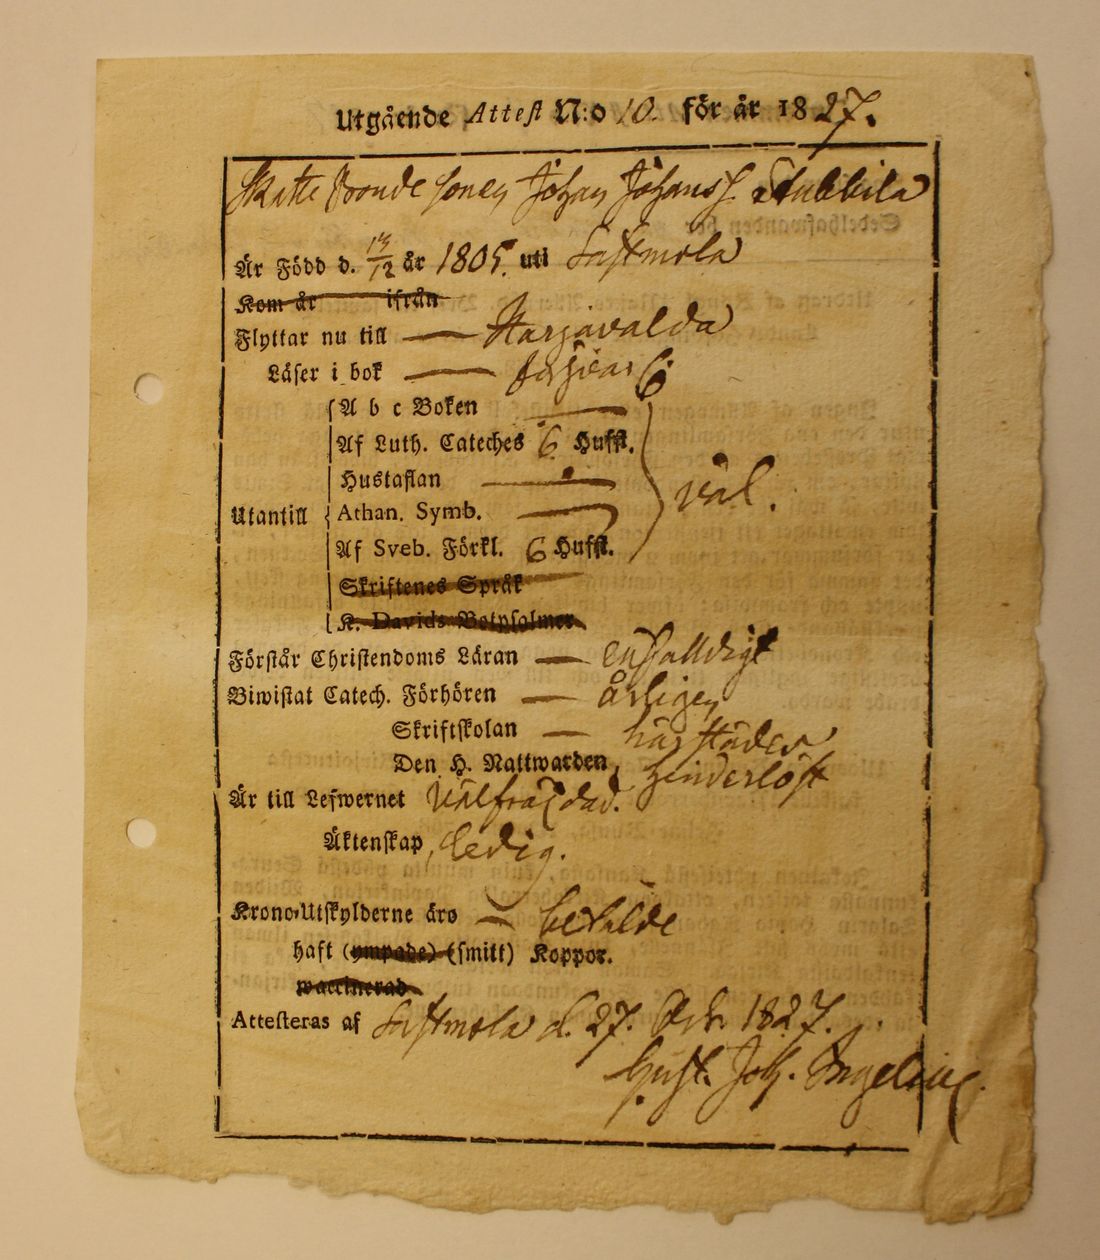 Utgående Attest N:o 10. för år 1827.
Skatte Bonde sonen Johan Johanss. Stubbila
Är Född d. 13/12 år 1805. uti Sastmola
Kom år ifrån
Flyttar nu till — Harjavalda
Läser i bok — försvar. 6.
A b c Boken —
Af Luth. Cateches 6 Huffst.
Hustaflan —
väl.
Utantill Athan. Symb. —
Af Sveb. Förkl. 6 Huffst.
Skriftenes Språk
K. Davids Botpsalmer
Förstår Christendoms Läran — enfalldigt
Biwistat Catech. Förhören — årligen
Skriftskolan — härstädes
Den H. Nattwarden, hinderlöst
Är till Lefwernet Välfräjdad.
Äktenskap, Ledig.
Krono-Utskylderne äro — betalde
haft (ympade) (smitt) Koppor.
waccinerad
Attesteras af Sastmola d. 27. 1827.
Gust. Joh.